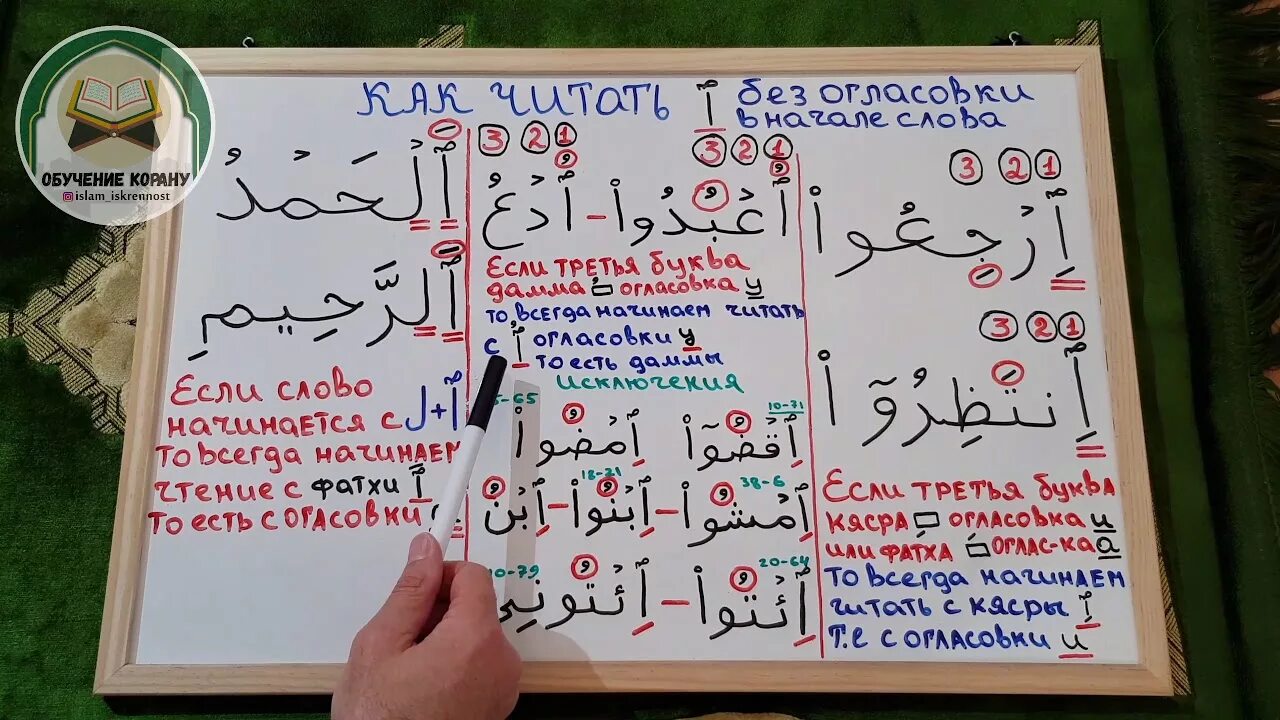 ОБУЧЕНИЕ КОРАНУ
islam_iskrennost
КАК ЧИТАТЬ ٱ без огласовки
в начале слова
ٱلْحَمْدُ
ٱلرَّحِيمِ
Если слово
начинается с ٱ+ل
то всегда начинаем
чтение с фатхи ٱ
то есть с огасовки
3 2 1
3 2 1
ٱعْبُدُوا۟ - ٱدْعُ
Если третья буква
дамма огласовка у
то, всегда начинаем читать
с ٱ огласовки у
то есть даммы
исключения
5-65 10-71
ٱقْضُوٓا۟ ٱمْضُوا۟
18-21 38-6
ٱمْشُوا۟ - ٱبْنُوا۟ - ٱبْنُ
10-79 20-64
ٱئْتُوا۟ - ٱئْتُونِي
3 2 1
ٱرْجِعُوا۟
3 2 1
ٱنتَظِرُوٓا۟
Если третья буква
кясра огласовка и
или фатха оглас-ка а
то всегда начинаем
читать с кясры ٱ
т.е с огласовки и